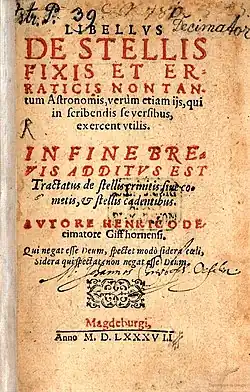 39
Decimator
LIBELLVS
DE STELLIS
FIXIS ET ER-
RATICIS NON TAN-
tum Astronomis, verùm etiam ijs, qui
in scribendis se versibus,
exercent vtilis.
IN FINE BRE-
VIS ADDITVS EST
Tractatus de stellis crinitis, siue co-
metis, & stellis cadentibus.
AVTORE HENRICO DE-
cimatore Giffhornensi.
Qui negat esse Deum, spectet modò sidera cœli,
Sidera qui spectat, non negat esse Deum.
Magdeburgi,
Anno M. D. LXXXVII.